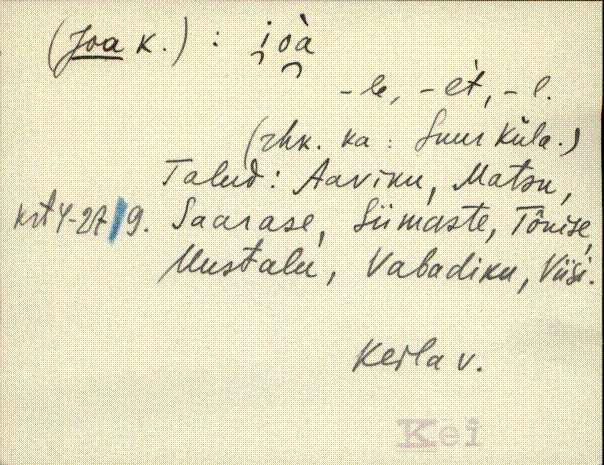 (Joa k.) : i̯o̯à
- le, - èt, - l.
(rhk. ka : Suur Küla.)
Talud: Aaviku, Matsu,
krt 4-27/9. Saarase, Siimaste, Tõnise,
Uustalu, Vabadiku, Viisi.
Keila v.
Kei